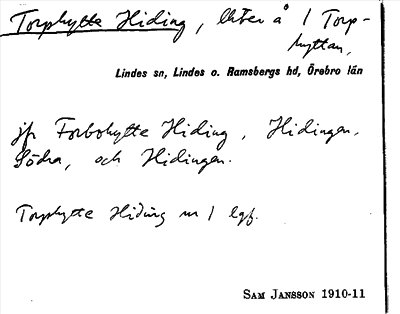 Torphytte Hiding, åker å 1 Torp-
hyttan,
Lindes sn, Lindes o. Ramsbergs hd, Örebro län
jfr Forbohytte Hiding, Hidingen,
Södra, och Hidingen.
Torphytte Hiding m 1 lgf.
SAM JANSSON 1910-11